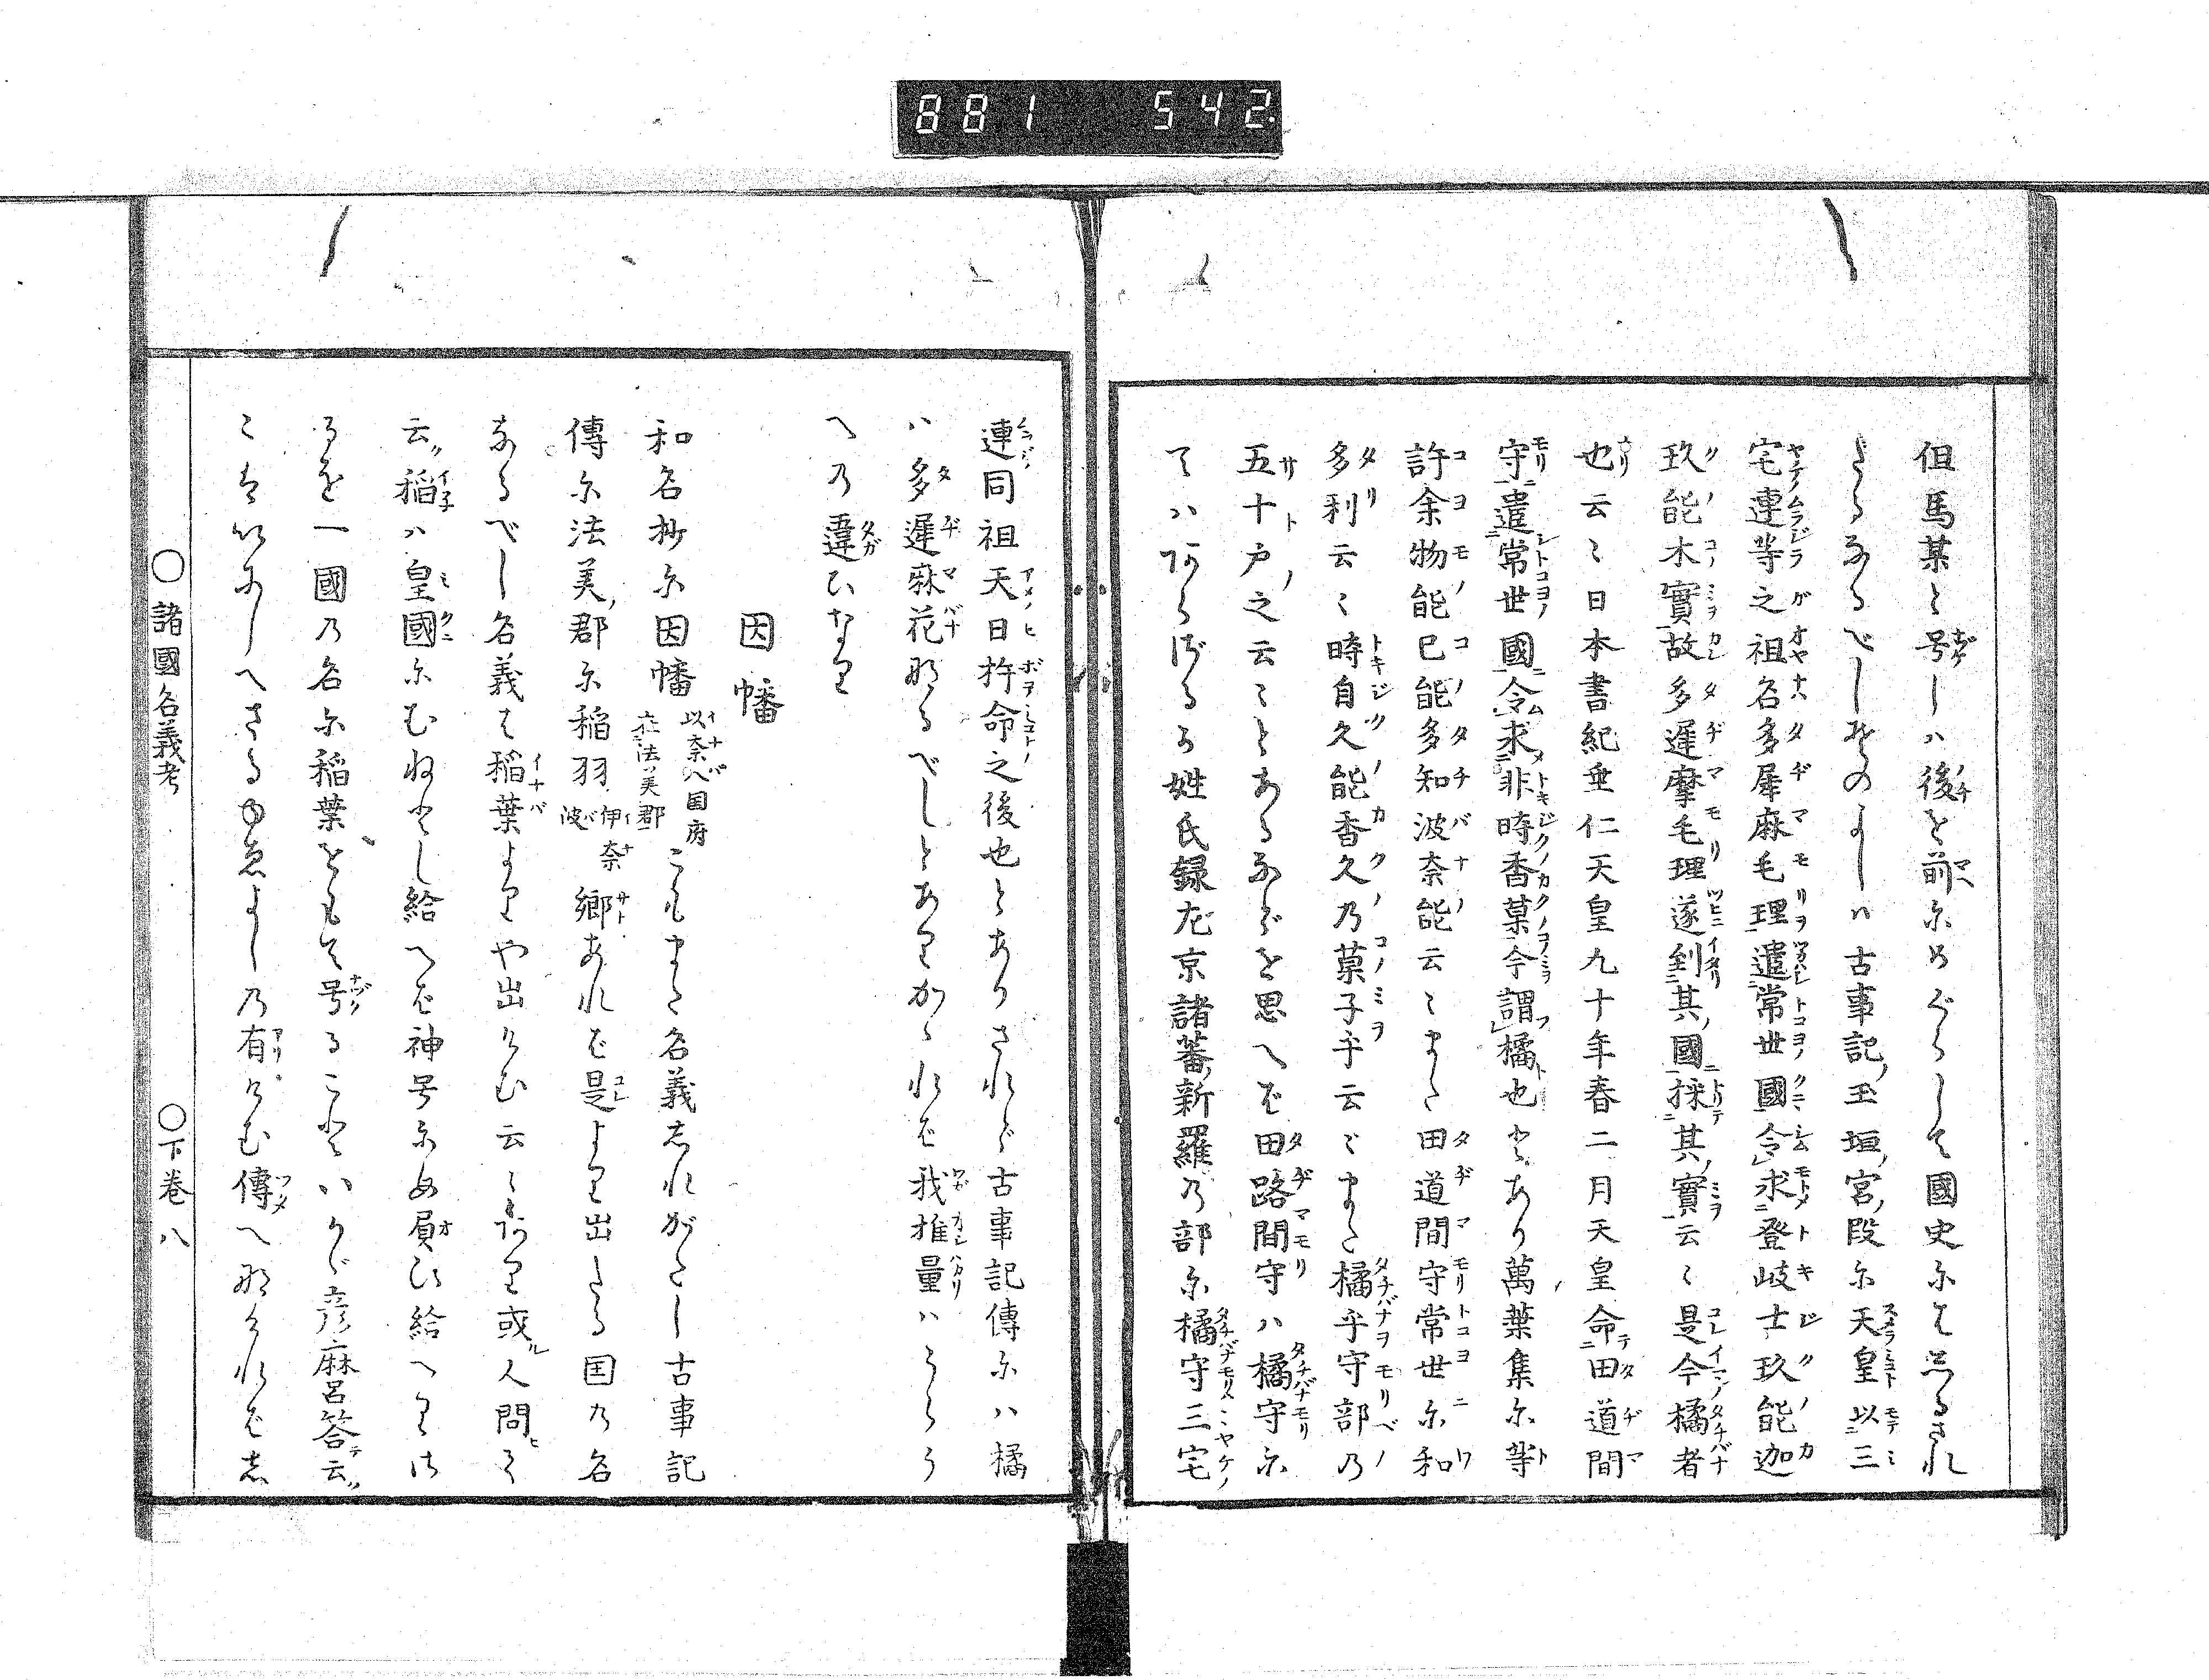 881 542.
但馬某と号しハ後を前尓めぐらして國史尓もしるされ
たるなるべしそのよしハ古事記玉垣宮段尓天皇以三
宅連等之祖名多遅麻毛理遣常世國令求登岐士玖能迦
玖能木實故多遅摩毛理遂到其國採其實云々是今橘者
也云々日本書紀垂仁天皇九十年春二月天皇命田道間
守遣常世國令求非時香菓今謂橘也とあり萬葉集尓等
許余物能己能多知波奈能云々また田道間守常世尓和
多利云々時自久能香久乃菓子乎云々また橘乎守部乃
五十戸之云々とあるなどを思へば田路間守ハ橘守尓
てハあらざるか姓氏録左京諸蕃新羅乃部尓橘守三宅
連同祖天日杵命之後也とありされど古事記傳尓ハ橘
ハ多遅麻花なるべしとありかゝれば我推量ハうらう
への違ひなり
因幡
和名抄尓因幡以奈八国府在法美郡こもまた名義志れがたし古事記
傳尓法美郡尓稲羽伊奈波郷あれば是より出たる国乃名
なるべし名義も稲葉よりや出けむ云々とあり或人問て
云稲ハ皇國尓むねとし給へば神号尓め負ひ給へりさ
るを一國乃名尓稲葉をもて号ることハいかゞ彦麻呂答云
こはいにしへさるゆゑよし乃有けむ傳へなければ志
○諸國名義考
○下巻 八